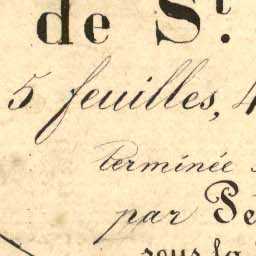 de St.
5 feuilles, 4
terminée
par Pe
sous la